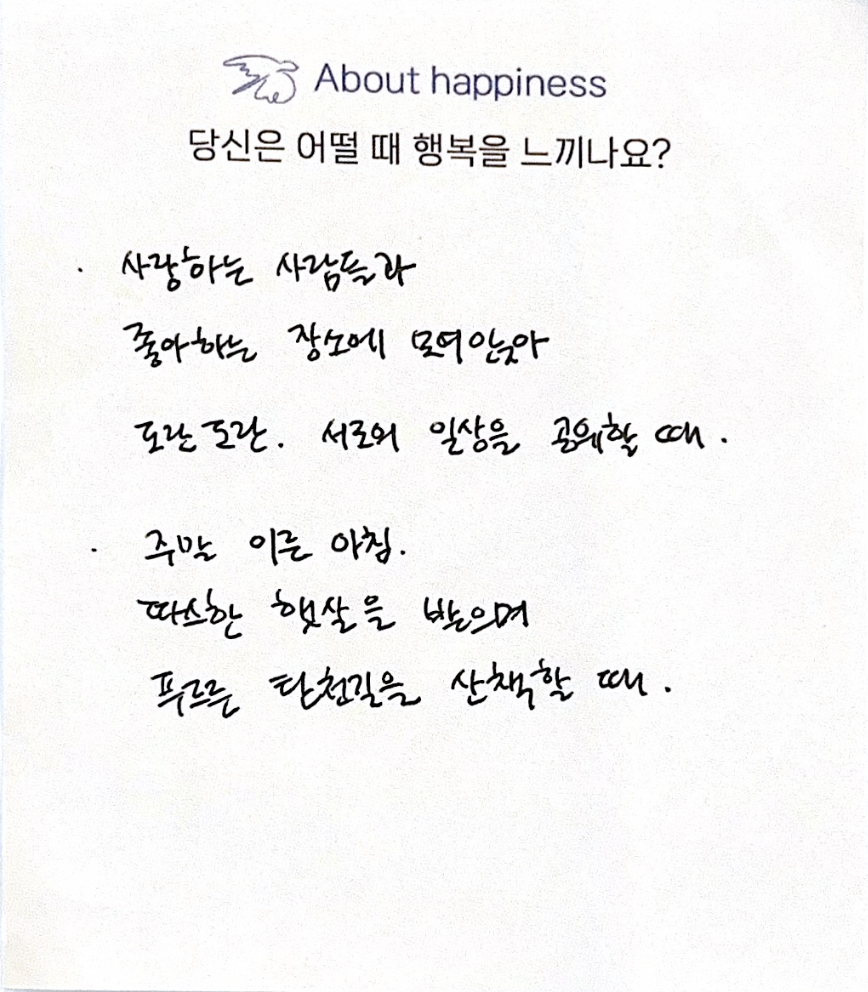 About happiness
당신은 어떨 때 행복을 느끼나요?
· 사랑하는 사람들과
좋아하는 장소에 모여앉아
도란도란. 서로의 일상을 공유할 때.
· 주말 이른 아침.
따스한 햇살을 받으며
푸르른 탄천길을 산책할 때.